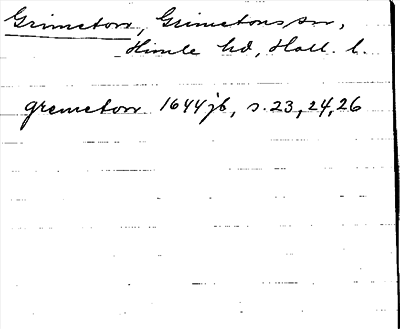 Grimeton, Grimetons sn,
Himle hd, Hall. l.
gremeton 1644 jb, s. 23, 24, 26